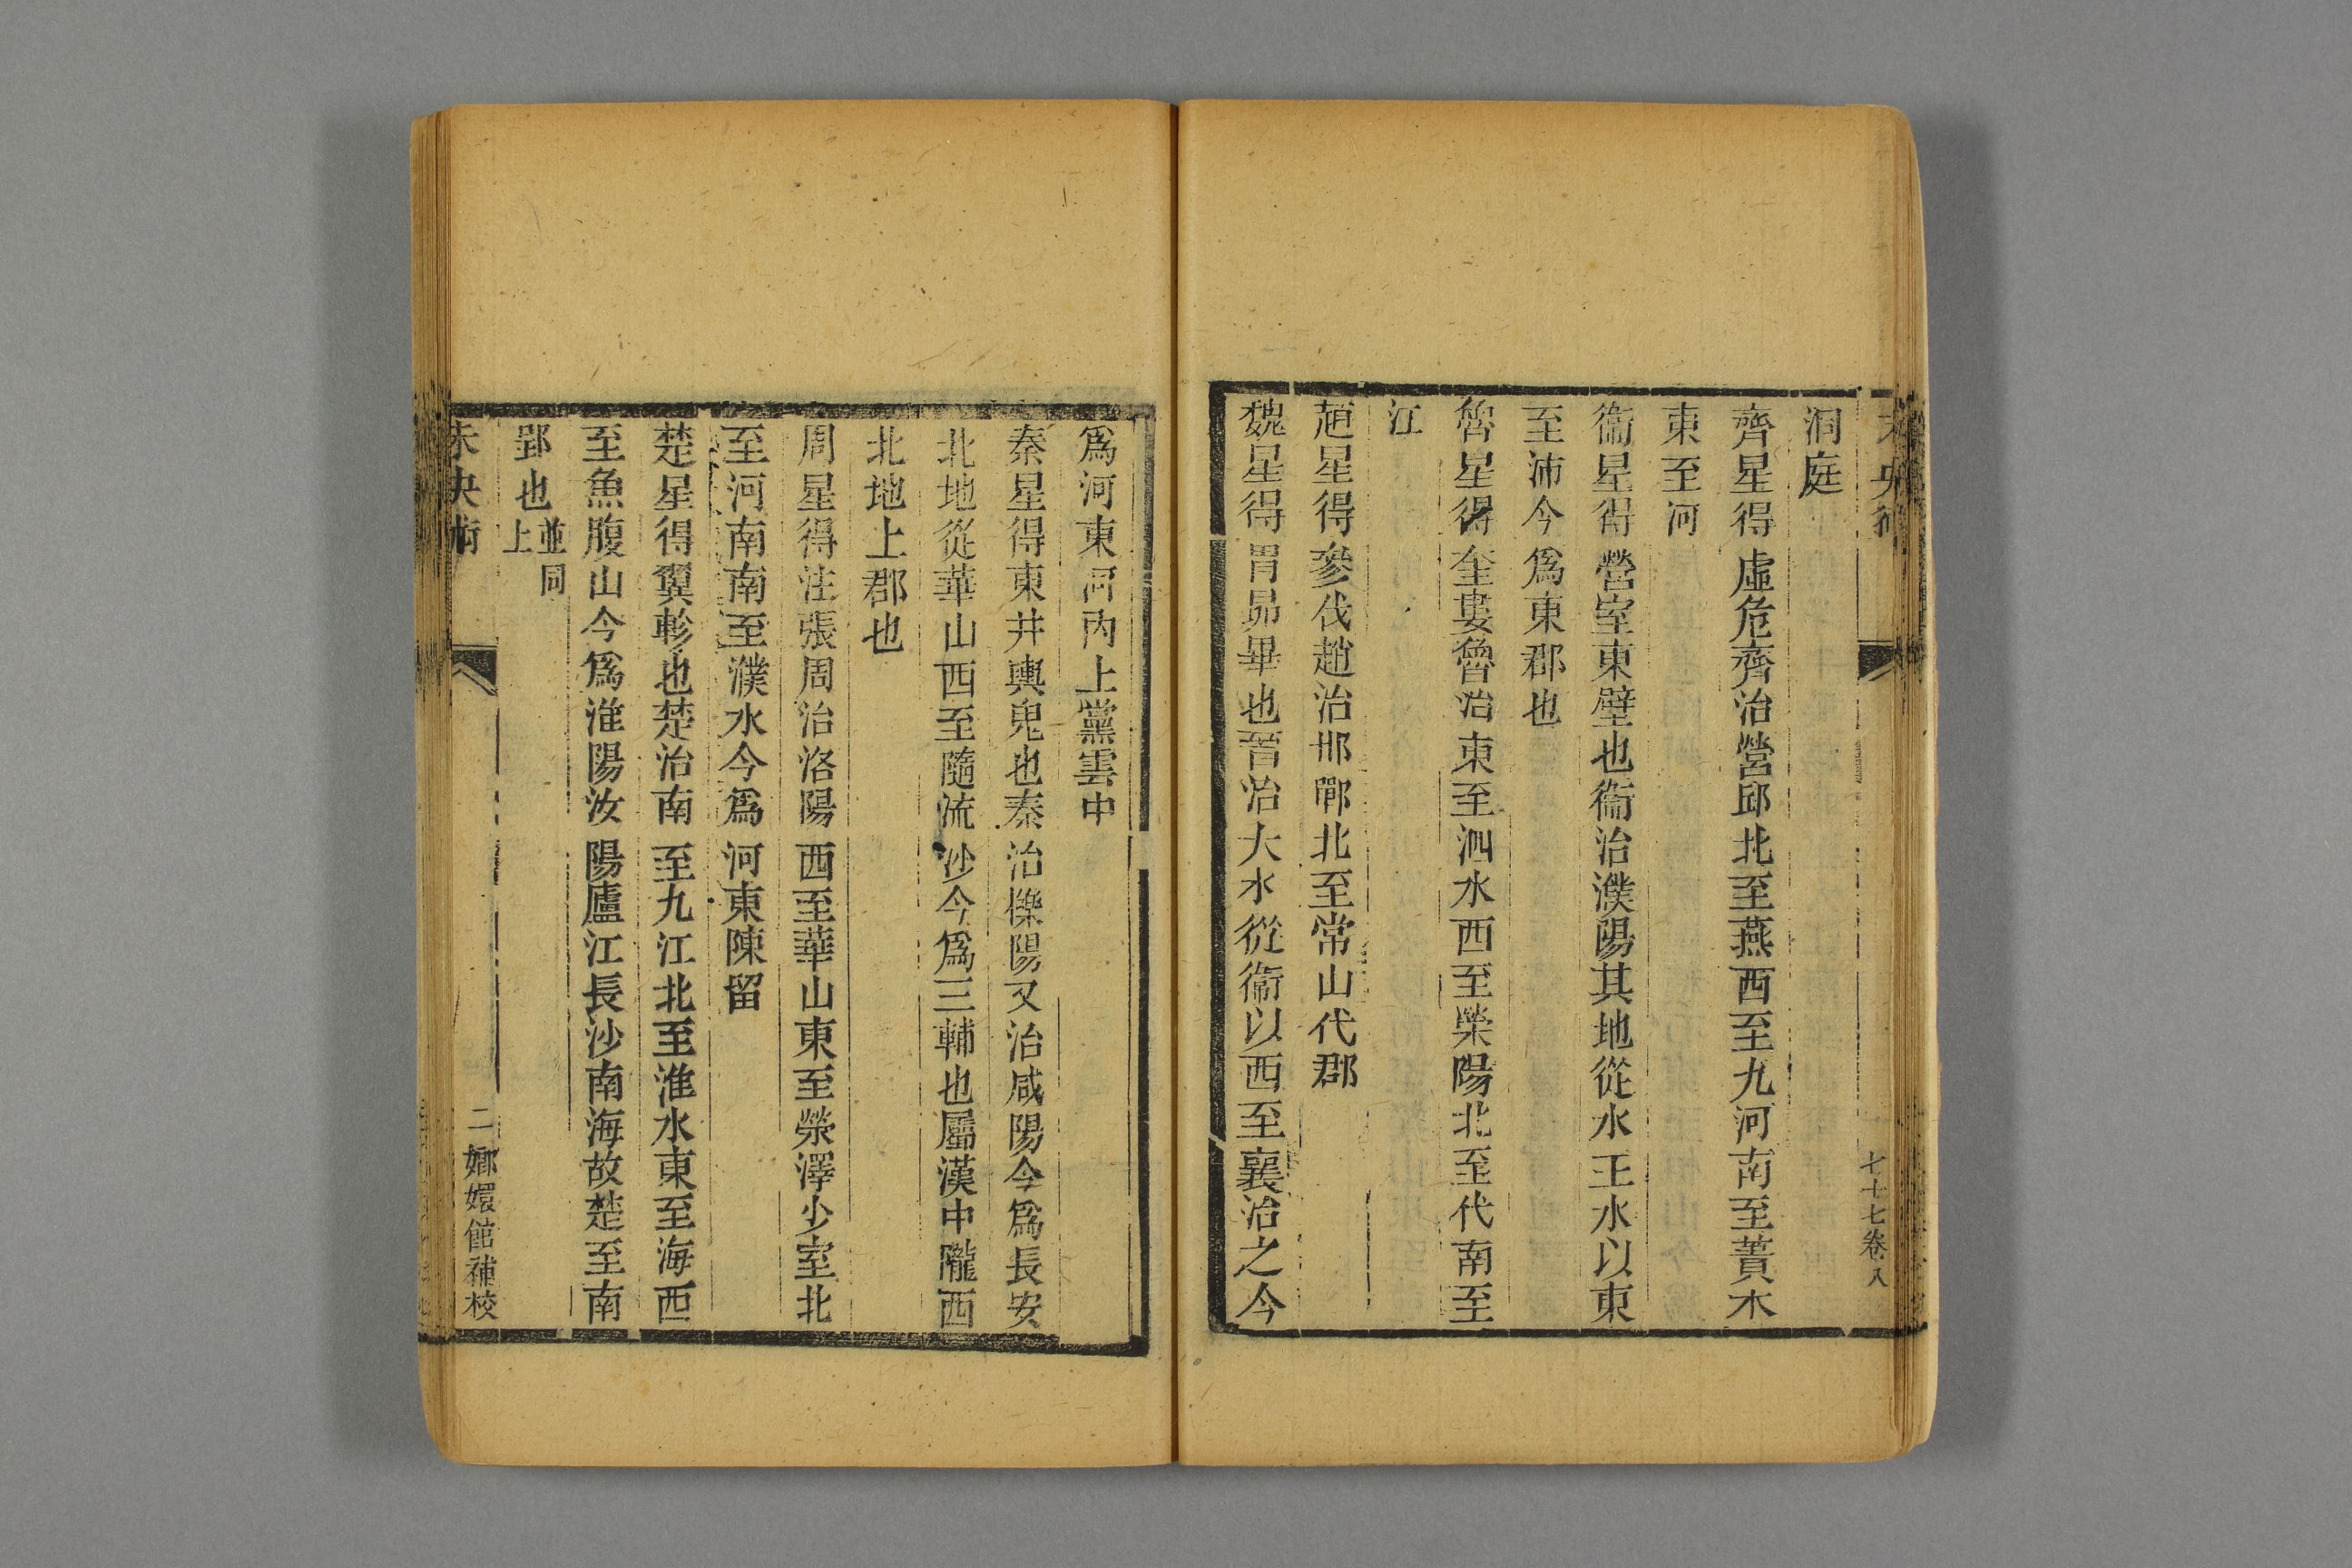 未央術
七十七卷八
洞庭
齊星得虛危齊治營邱北至燕西至九河南至蕢木
東至河
衞星得營室東壁也衞治濮陽其地從水王水以東
至沛今爲東郡也
魯星得奎婁魯治東至泗水西至滎陽北至代南至
江
趙星得參伐趙治邯鄲北至常山代郡
魏星得胃昴畢也晉治大水從衞以西至襄治之今
爲河東河內上黨雲中
秦星得東井輿鬼也秦治櫟陽又治咸陽今爲長安
北地從華山西至隨流沙今爲三輔也屬漢中隴西
北地上郡也
周星得注張周治洛陽西至華山東至滎澤少室北
至河南南至濮水今爲河東陳留
楚星得翼軫也楚治南至九江北至淮水東至海西
至魚腹山今爲淮陽汝陽廬江長沙南海故楚至南
郢也並同上
未央術
二
嫏嬛館補校